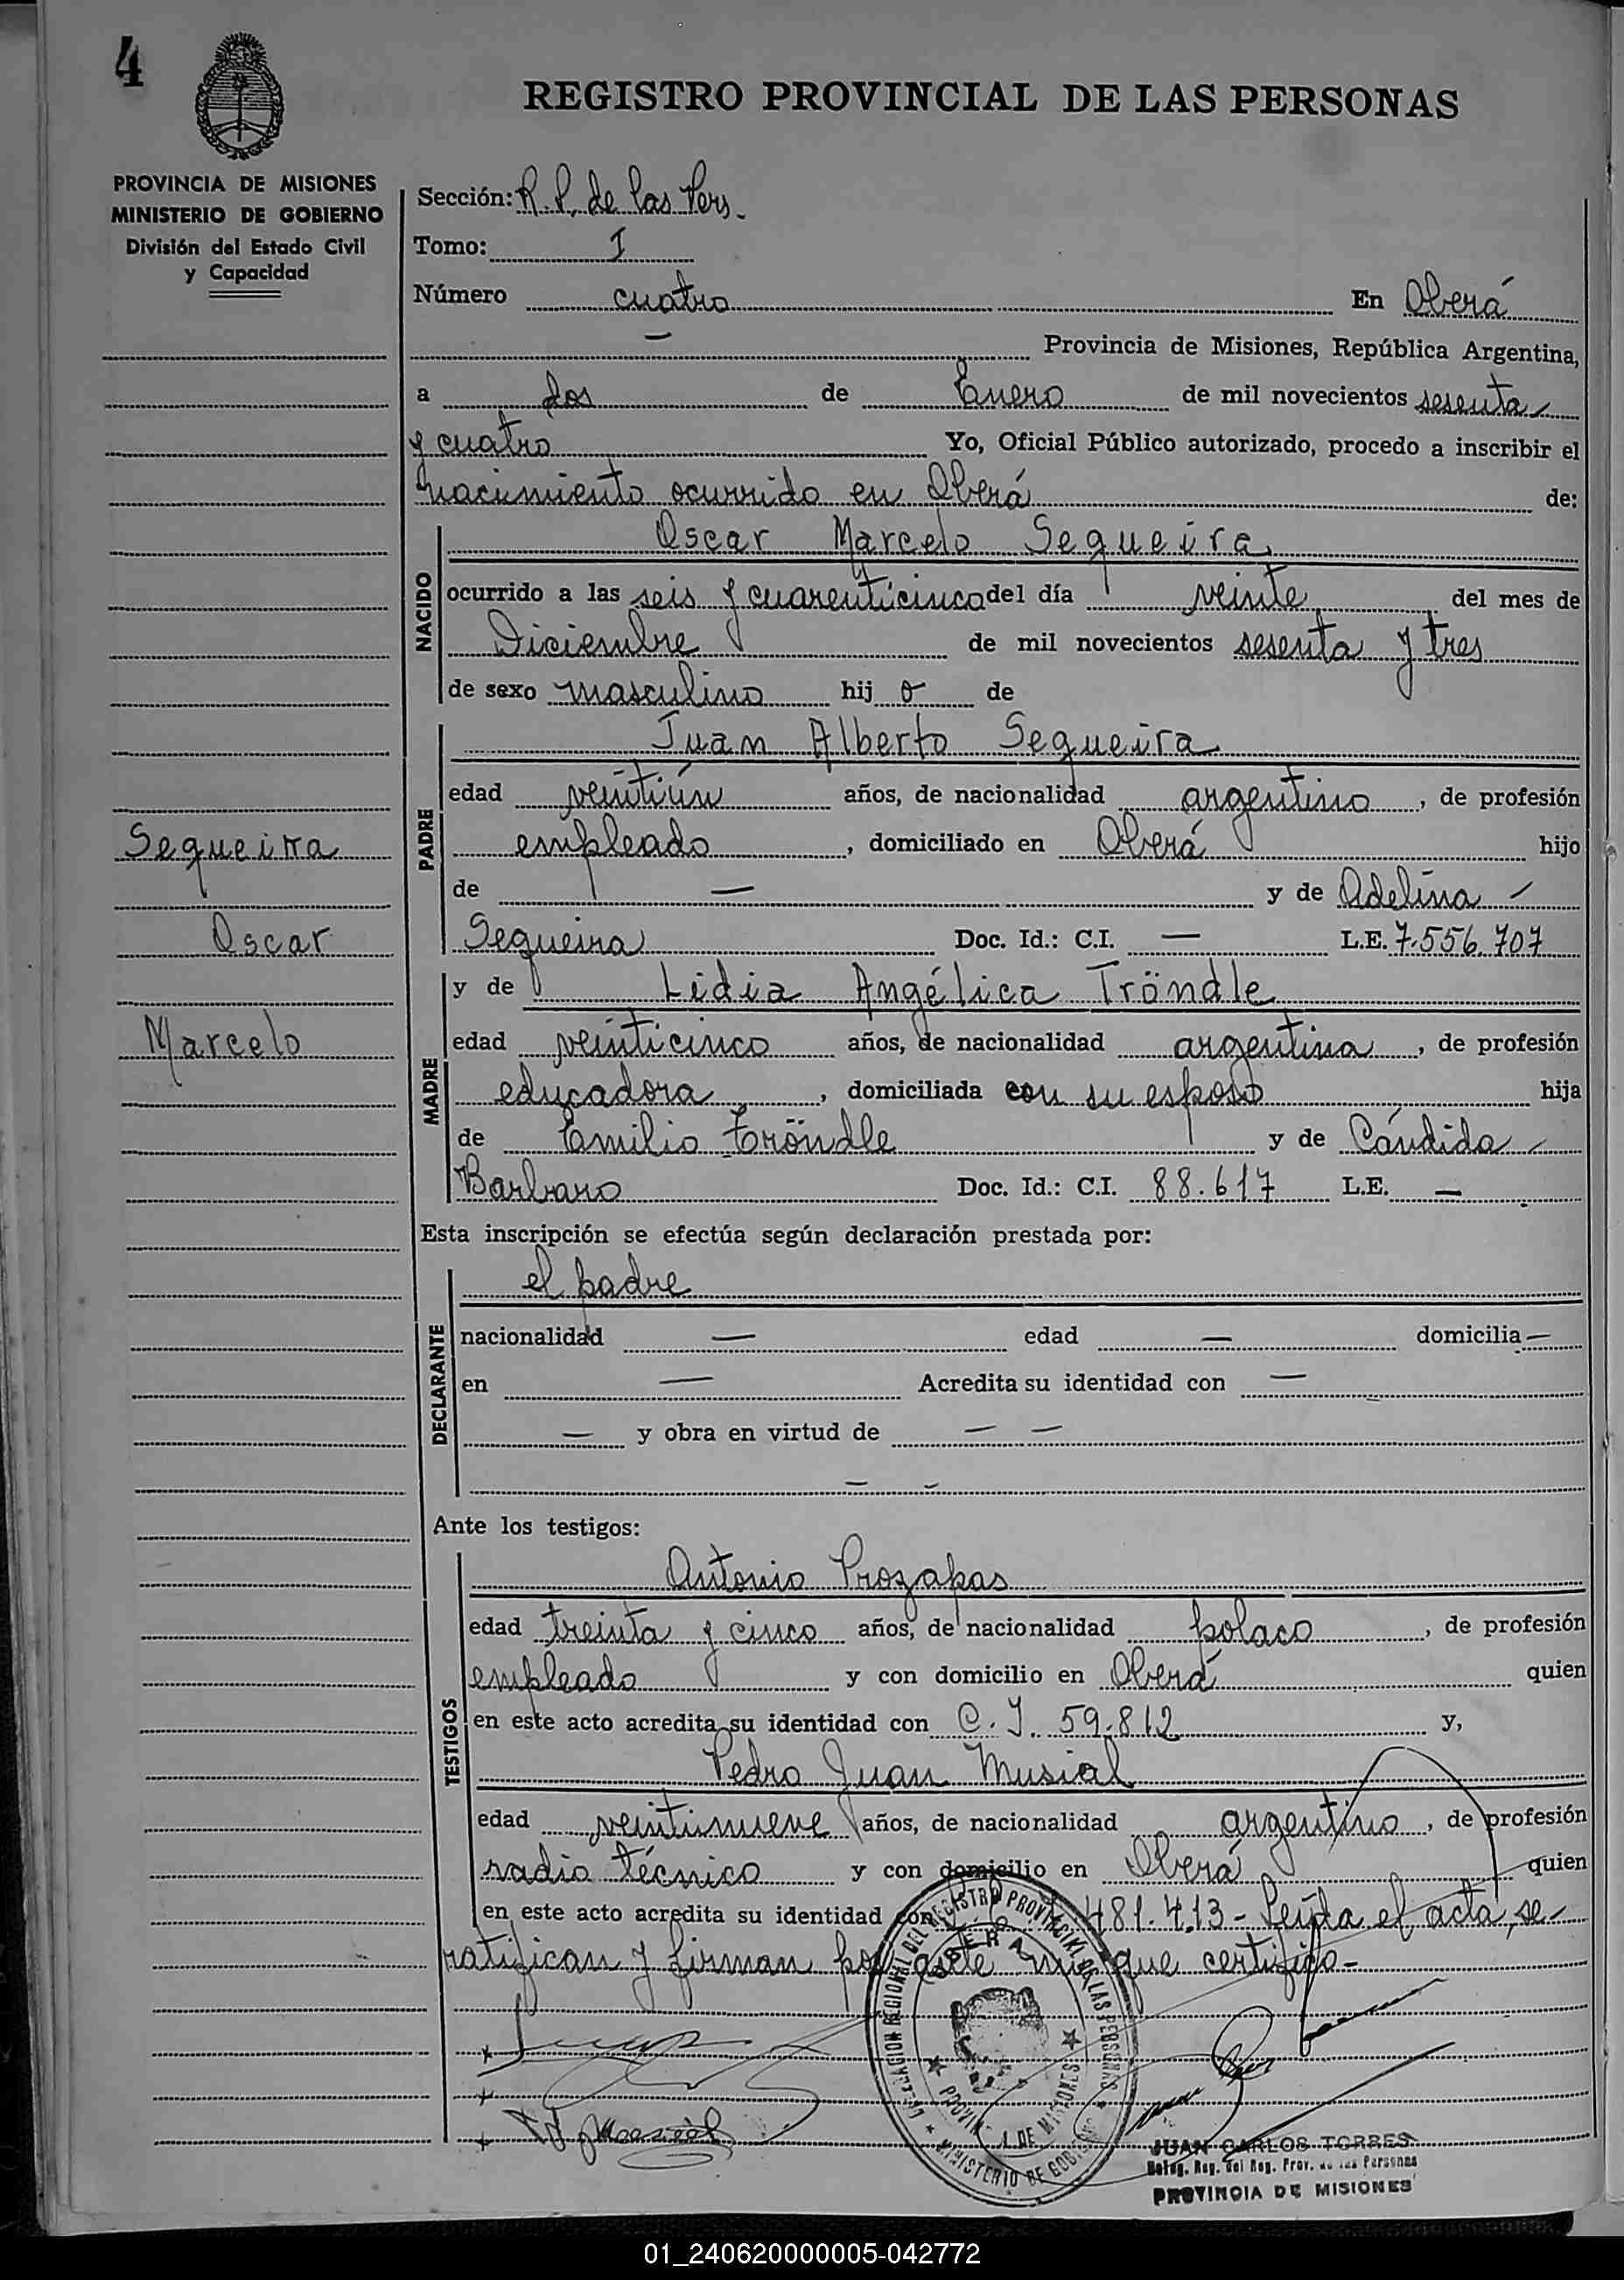 4
REGISTRO PROVINCIAL DE LAS PERSONAS
PROVINCIA DE MISIONES
MINISTERIO DE GOBIERNO
División del Estado Civil
y Capacidad
Sección: R. P. de las Pers.
Tomo: I
Número cuatro En Oberá
— Provincia de Misiones, República Argentina,
a dos de Enero de mil novecientos sesenta
y cuatro Yo, Oficial Público autorizado, procedo a inscribir el
nacimiento ocurrido en Oberá de:
NACIDO
Oscar Marcelo Sequeira
ocurrido a las seis y cuarenticinco del día veinte del mes de
Diciembre de mil novecientos sesenta y tres
de sexo masculino hij o de
PADRE
Juan Alberto Sequeira
edad veintiún años, de nacionalidad argentino, de profesión
empleado, domiciliado en Oberá hijo
de — y de Adelina
Sequeira Doc. Id.: C.I. — L.E. 7.556.707
Sequeira
Oscar
Marcelo
MADRE
y de Lidia Angélica Tröndle
edad veinticinco años, de nacionalidad argentina, de profesión
educadora, domiciliada con su esposo hija
de Emilio Tröndle y de Cándida
Barbaro Doc. Id.: C.I. 88.617 L.E. —
Esta inscripción se efectúa según declaración prestada por:
DECLARANTE
el padre
nacionalidad — edad — domicilia —
en — Acredita su identidad con —
— y obra en virtud de — —
— —
Ante los testigos:
TESTIGOS
Antonio Prozapas
edad treinta y cinco años, de nacionalidad polaco, de profesión
empleado y con domicilio en Oberá quien
en este acto acredita su identidad con C. I. 59.812 y,
Pedro Juan Musial
edad veintinueve años, de nacionalidad argentino, de profesión
radio técnico y con domicilio en Oberá quien
en este acto acredita su identidad con 481.413 - Leída el acta, se
ratifican y firman por ante mi que certifico -
DELEGACION REGIONAL DEL REGISTRO PROVINCIAL DE LAS PERSONAS
OBERA
PROVINCIA DE MISIONES
MINISTERIO DE GOBIERNO
JUAN CARLOS TORRES
Deleg. Reg. del Reg. Prov. de las Personas
PROVINCIA DE MISIONES
01_240620000005-042772